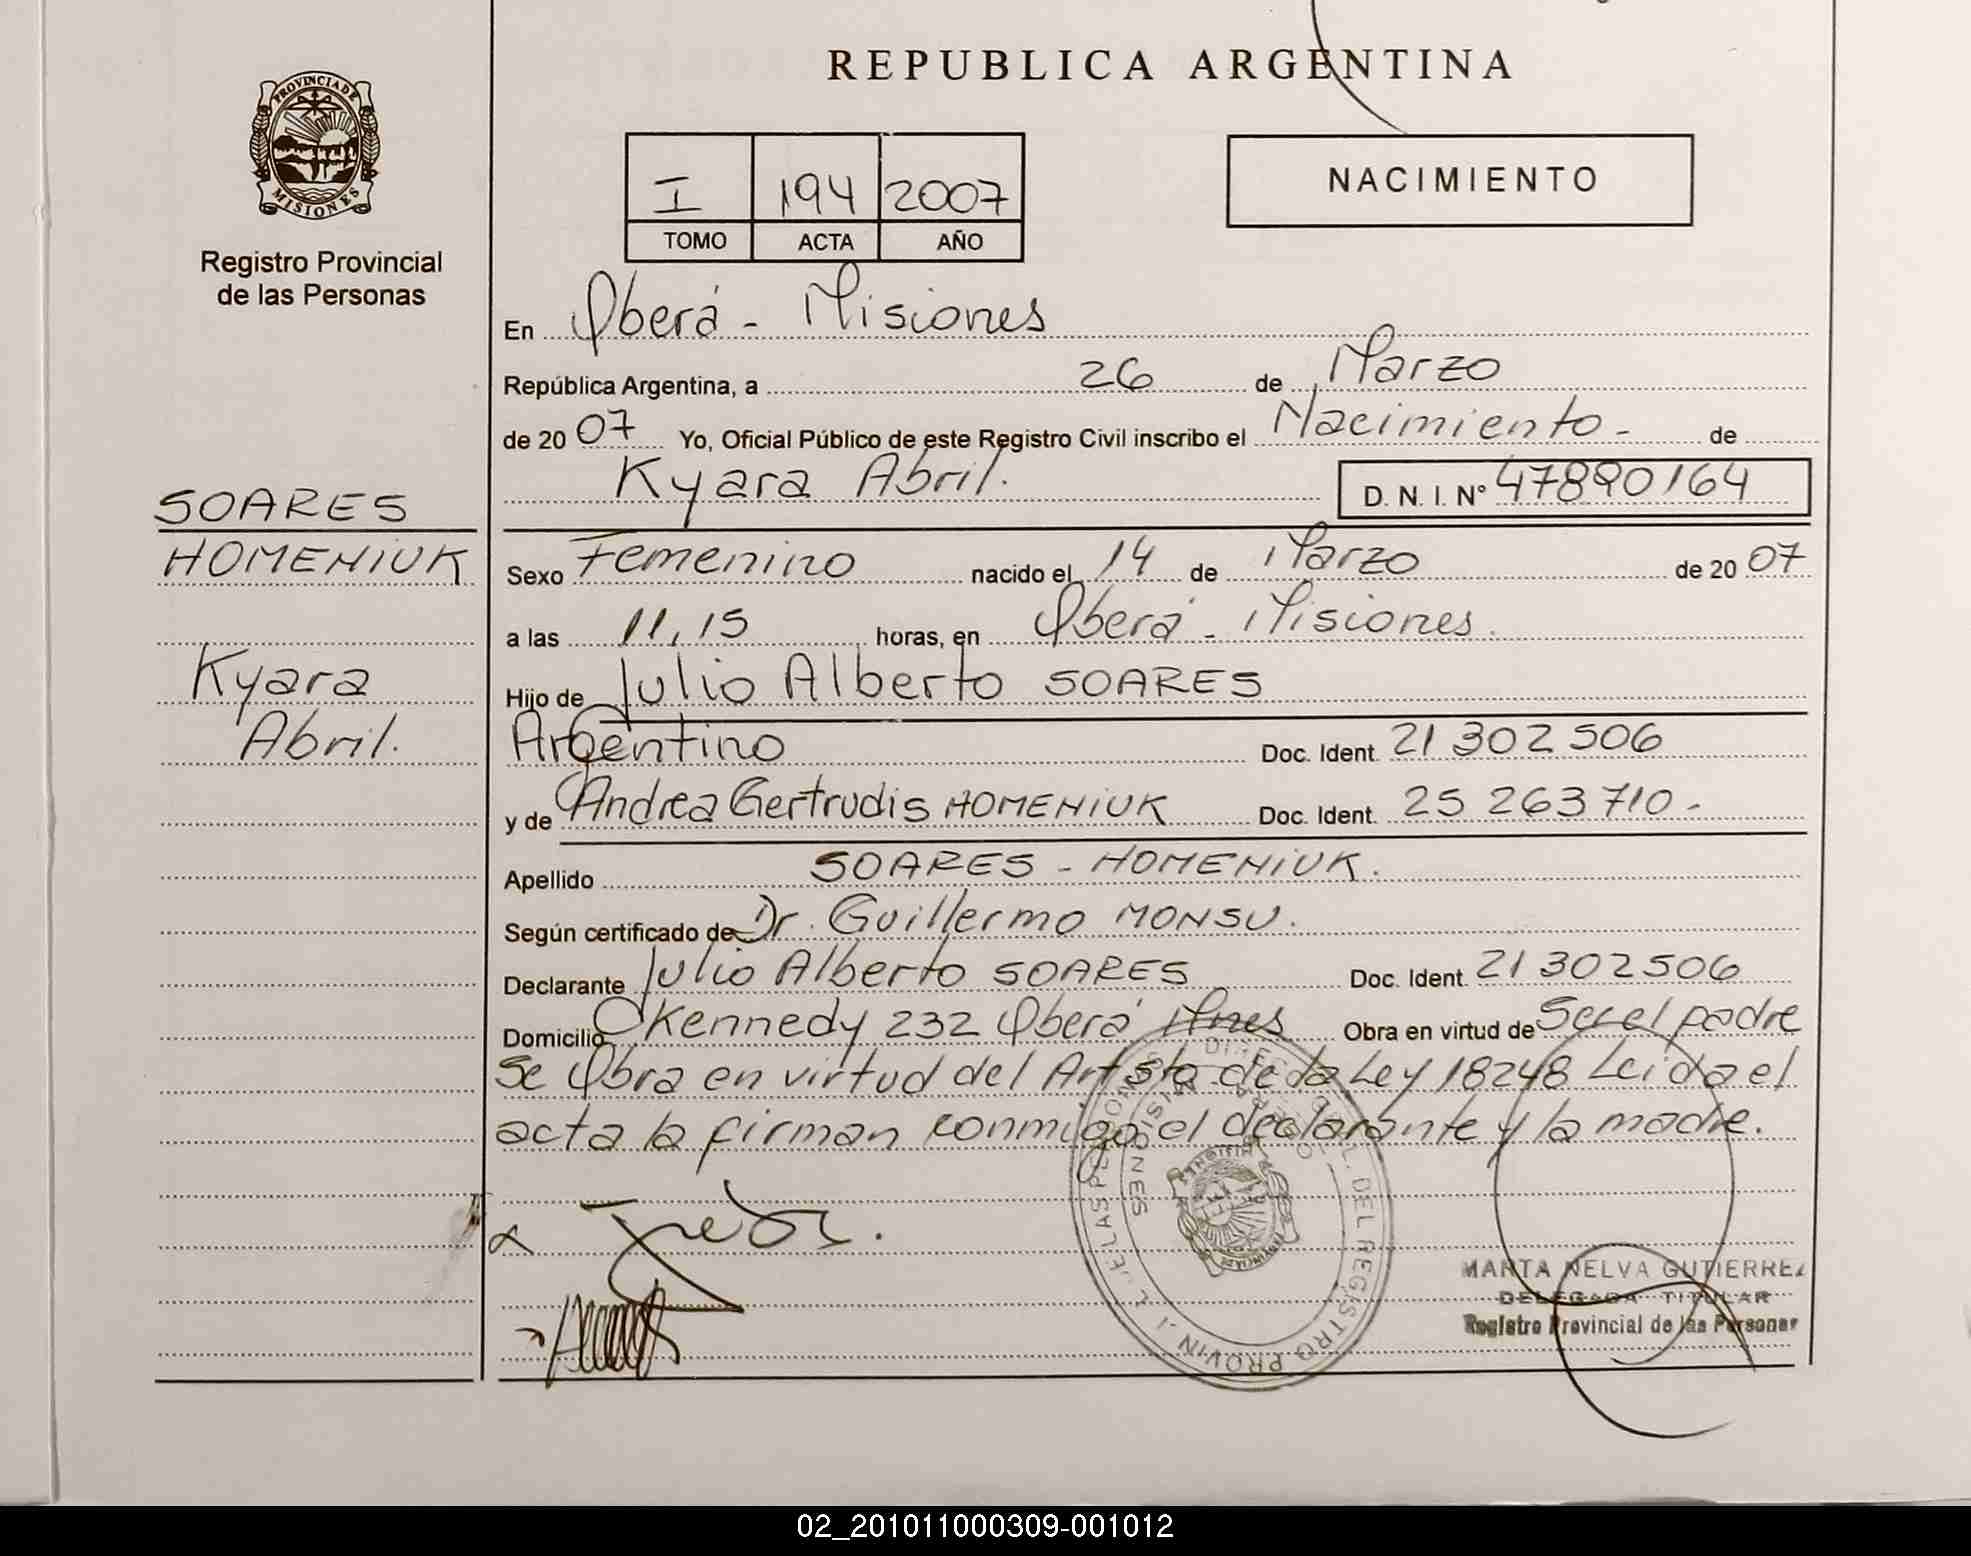 REPUBLICA ARGENTINA
PROVINCIA DE MISIONES
Registro Provincial
de las Personas
I 194 2007
TOMO ACTA AÑO
NACIMIENTO
En Oberá - Misiones
República Argentina, a 26 de Marzo
de 2007 Yo, Oficial Público de este Registro Civil inscribo el Nacimiento - de
Kyara Abril. D. N. I. Nº 47890164
SOARES
HOMENIUK
Kyara
Abril.
Sexo Femenino nacido el 14 de Marzo de 2007
a las 11,15 horas, en Oberá - Misiones.
Hijo de Julio Alberto SOARES
Argentino Doc. Ident. 21 302 506
y de Andrea Gertrudis HOMENIUK Doc. Ident. 25 263 710 -
Apellido SOARES - HOMENIUK.
Según certificado de Dr. Guillermo MONSU.
Declarante Julio Alberto SOARES Doc. Ident. 21 302506
Domicilio Kennedy 232 Oberá Mnes Obra en virtud de Ser el padre
Se Obra en virtud del Art 5to de la Ley 18248 Leida el
acta la firman conmigo el declarante y la madre.
MARTA NELVA GUTIERREZ
DELEGADA TITULAR
Registro Provincial de las Personas
02_201011000309-001012